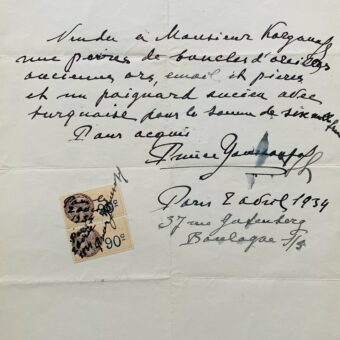 Vendu à Monsieur Kolganoff
une paires de boucles d'oreilles
anciennes ors, email et pierres
et un poignard ancien avec
turquoise pour la somme de six mille francs
Pour acquis
Prince Youssoupoff
Paris 2 avril 1934
37 rue Gutenberg
Boulogne s/s
90c
90c